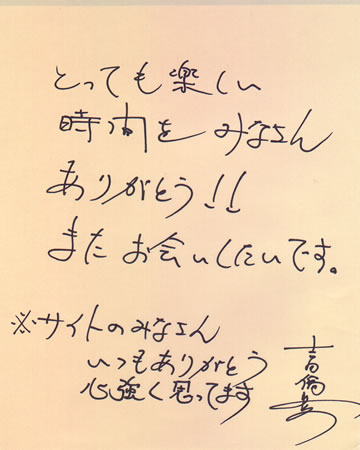 とっても楽しい
時間をみなさん
ありがとう!!
またお会いしたいです。
※サイトのみなさん
いつもありがとう
心強く思ってます
高橋